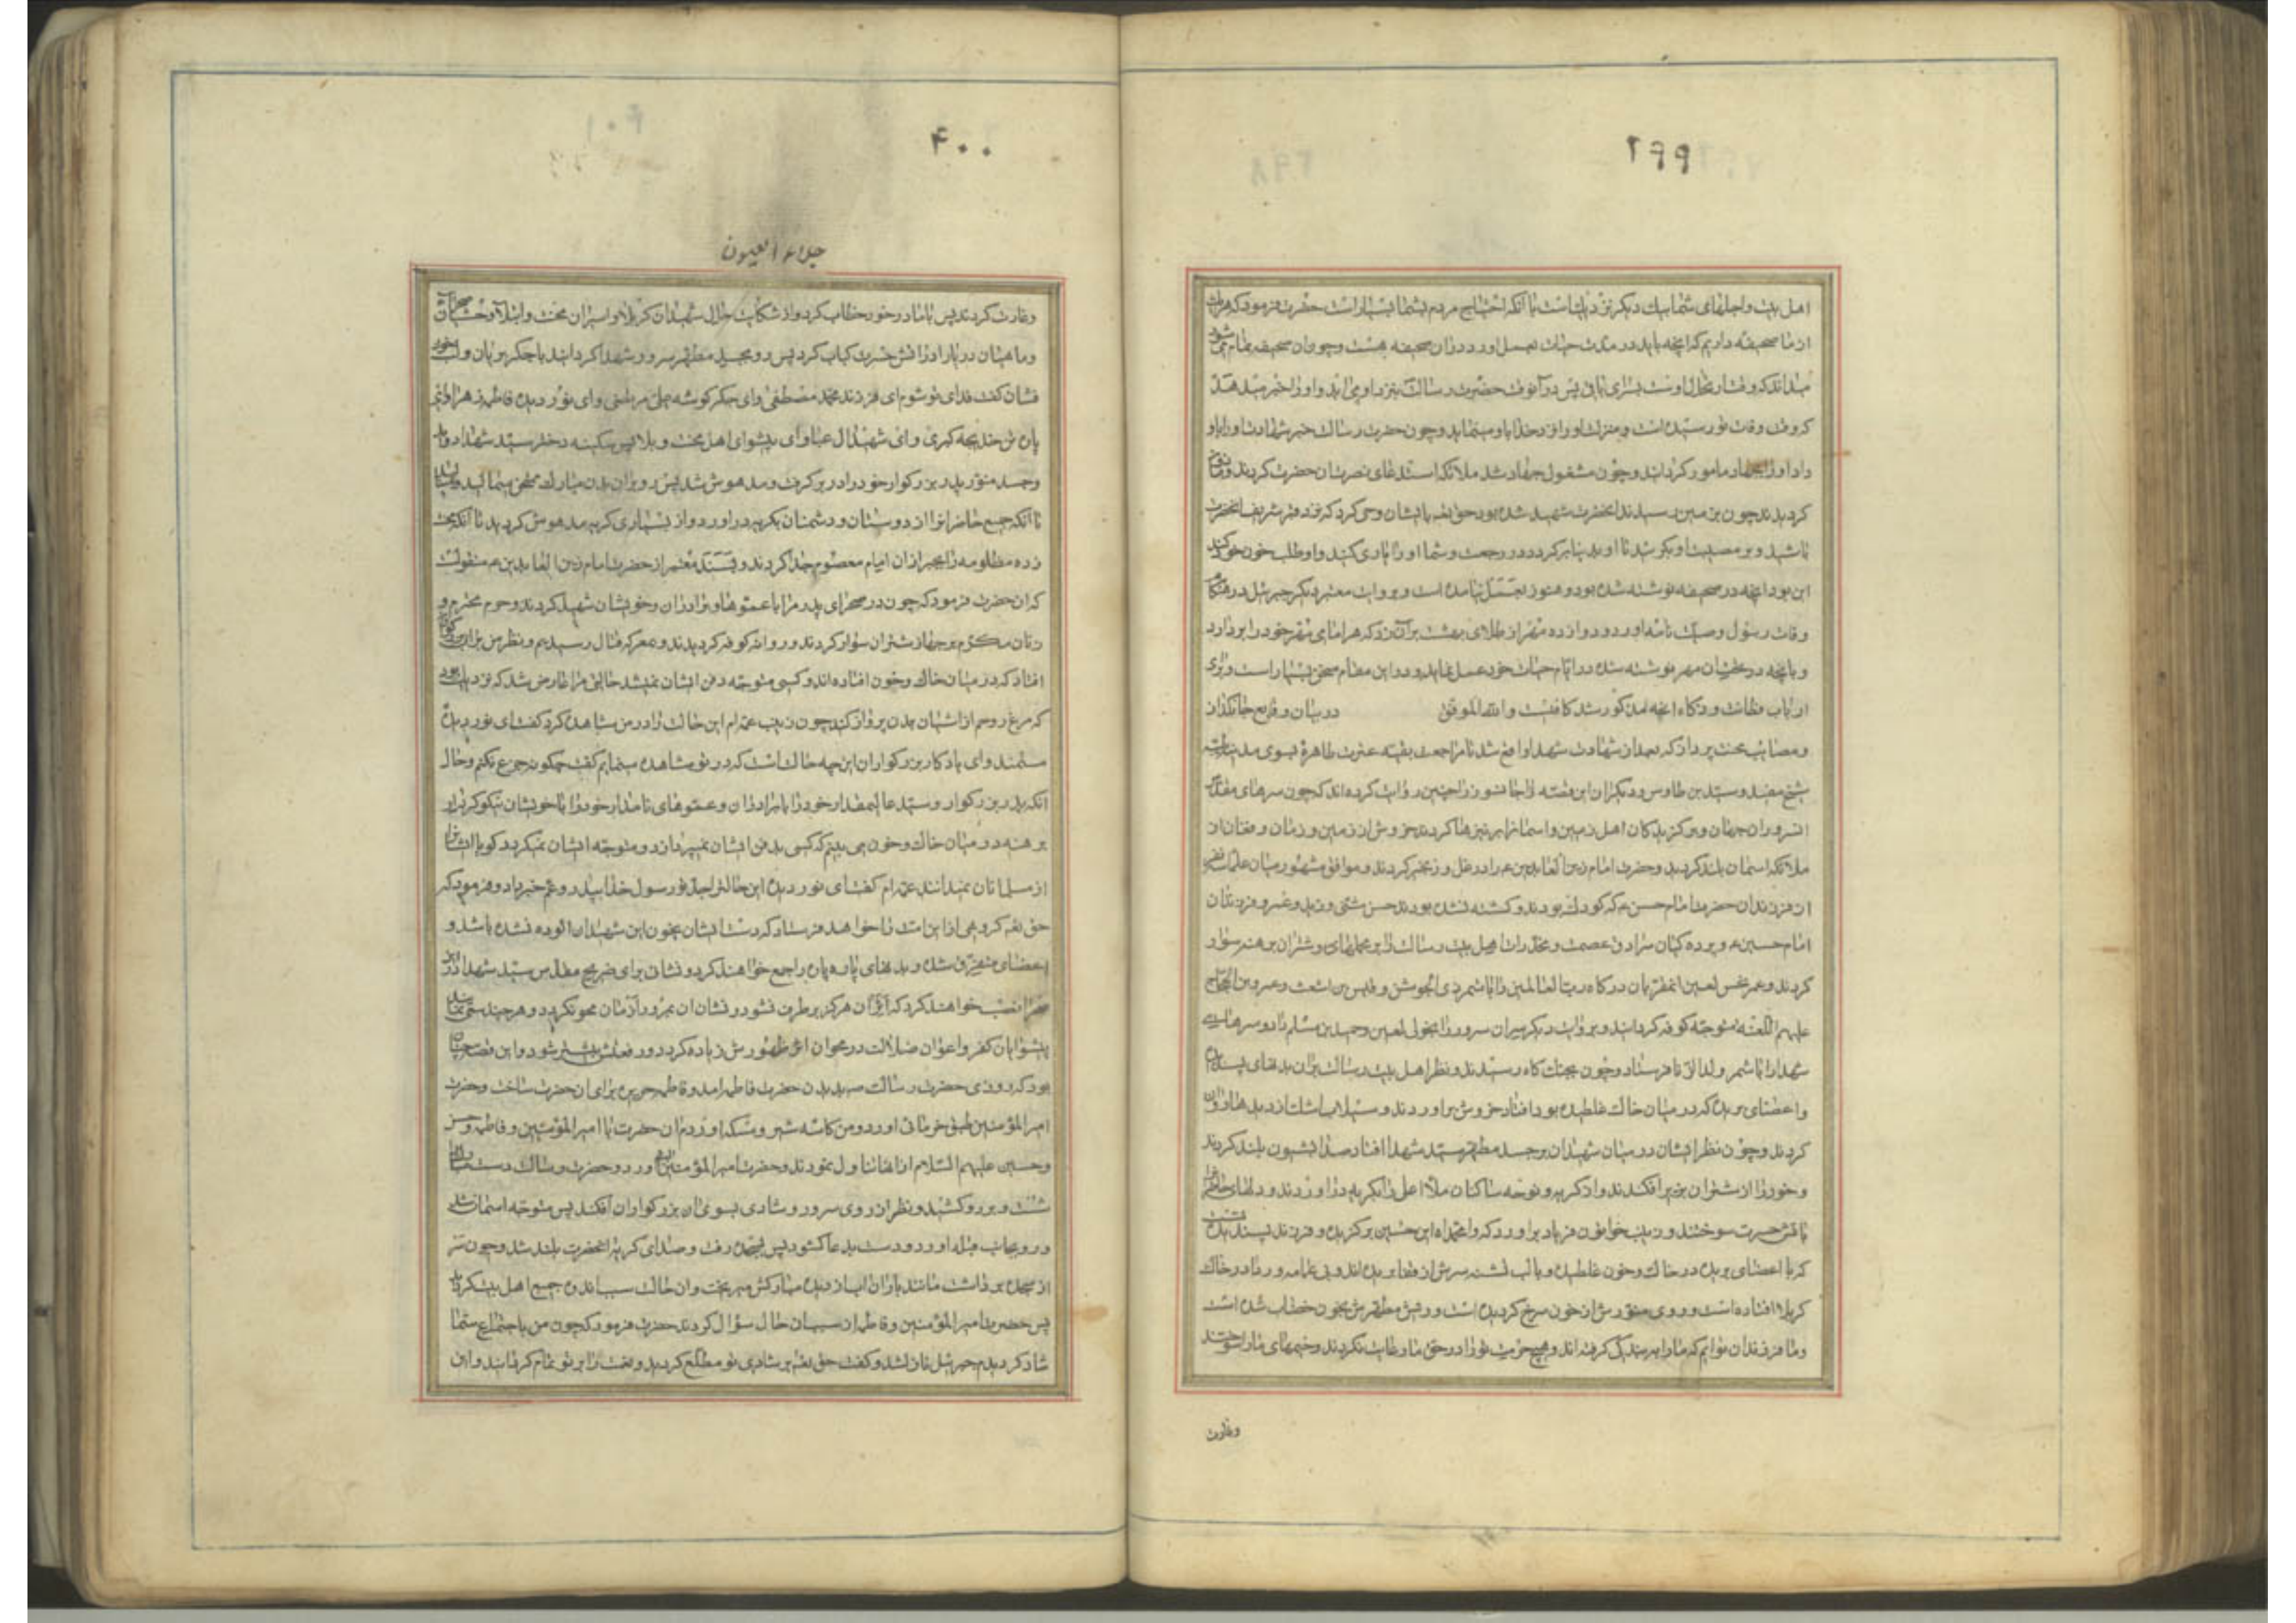 ۳۹۹
اهل بیت و اجلهای شما بیک دیکر نزدیکست با آنکه احتیاج مردم بشما بسیار است حضرت فرمود که هریک
از ما صحیفه داریم که آنچه باید در مدت حیات بعمل آورد در آن صحیفه هست و چون آن صحیفه تمام میشود
میداند که وقت ارتحال اوست بسرای باقی پس در آنوقت حضرت رسالت بنزد او می‌آید و او را خبر میدهد
که وقت وفات تو رسیده است و منزلت او را نزد خدا باو مینماید و چون حضرت رسالت خبر شهادت او را باو
داد او را بجهاد مامور کردانید و چون مشغول جهاد شد ملائکه استدعای نصرت آن حضرت کردند و ماذون
کردیدند چون بزمین رسیدند آنحضرت شهید شده بود حق تعه بایشان وحی کرد که نزد قبر شریف آنحضرت
باشید و بر مصیبت او بکریید تا او بدنیا برکردد در رجعت و شما او را یاری کنید و او طلب خون خود کند
این بود آنچه در صحیفه نوشته شده بود و هنوز بعمل نیامده است و بروایت معتبر دیکر جبرئیل در هنکام
وفات رسول وصیت نامه آورد و دوازده مهر از طلای بهشت بر آن زد که هر امامی مهر خود را بردارد
و بآنچه در تحت آن مهر نوشته شده در ایام حیات خود عمل نماید و در این مقام سخن بسیار است و برای
ارباب فطانت و ذکاء آنچه مذکور شد کافیست و الله الموفق در بیان وقایع جانکداز
و مصایب محنت پرداز که بعد از شهادت شهدا واقع شد تا مراجعت بقیه عترت طاهره بسوی مدینه طیبه
شیخ مفید و سید بن طاوس و دیکران این قصه را جانسوز را چنین روایت کرده‌اند که چون سرهای مقدس
سروران جهان و برکزیدکان اهل زمین و آسمان را بر نیزها کردند خروش از زمین و زمان و فغان از
ملائکه آسمان بلند کردید و حضرت امام زین العابدین ع را در غل و زنجیر کردند و موافق مشهور میان علما سه نفر
از فرزندان حضرت امام حسن ع که کودک بودند و کشته نشده بودند حسن مثنی و زید و عمرو و فرزندان
امام حسین ع و پرده کیان سرادق عصمت و مخدرات اهل بیت رسالت را بر محملهای و شتران برهنه سوار
کردند و عمر نحس لعین آن مقربان درکاه رب العالمین را با شمر ذی الجوشن و قیس بن اشعث و عمرو بن الحجاج
علیهم اللعنه متوجه کوفه کردانید و بروایت دیکر سر آن سرور را بخولی لعین و حمید بن مسلم داد و سرهای سایر
شهدا را با شمر ولد الزنا فرستاد و چون بجنک کاه رسیدند و نظر اهل بیت رسالت بر آن بدنهای پسندیده
و اعضای بریده که در میان خاک غلطیده بود افتاد خروش برآوردند و سیلاب اشک از دیدها روان
کردند و چون نظر ایشان در میان شهیدان بر جسد مطهر سید شهدا افتاد صدا بشیون بلند کردند
و خود را از شتران بزیر افکندند و از کریه و نوحه ساکنان ملاء اعلی را بکریه درآوردند و دلهای حاضران
بآتش حسرت سوختند و زینب خواتون فریاد برآورد که وامحمداه این حسین برکزیده و فرزند پسندیده تست
که با اعضای بریده در خاک و خون غلطیده و با لب تشنه سرش از قفا بریده‌اند و بی عمامه و ردا در خاک
کربلا افتاده است و روی منورش از خون سرخ کردیده است و ریش مطهرش بخون خضاب شده است
و ما فرزندان توایم که ما را ببندکی کرفته‌اند و هیچ حرمت تو را در حق ما رعایت نکردند و خیمهای ما را سوختند
وغارت
۴۰۰
جلاء العیون
و غارت کردند پس با مادر خود خطاب کرد و از شکایت حال شهیدان کربلا و اسیران محنت و ابتلا وحشیان صحرا
و ماهیان دریا را در آتش حسرت کباب کرد پس رو بجسد مطهر سرور شهدا کردانید با جکر بریان و لب خون
فشان کفت فدای تو شوم ای فرزند محمد مصطفی و ای جکر کوشه علی مرتضی و ای نور دیده فاطمه زهرا و ای
پاره تن خدیجه کبری و ای شهید آل عبا و ای پیشوای اهل محنت و بلا پس سکینه دختر سید شهدا دوید
و جسد منور پدر بزرکوار خود را در بر کرفت و مدهوش شد پس رو بر آن بدن مبارک میمالید و مینالید
تا آنکه جمیع حاضران را از دوستان و دشمنان بکریه درآورد و از بسیاری کریه مدهوش کردید تا آنکه محنت
زده مظلومه را بجبر از آن امام معصوم جدا کردند و بسند معتبر از حضرت امام زین العابدین ع منقولست
که آن حضرت فرمود که چون در صحرای پدر مرا با عموها و برادران و خویشان شهید کردند و حرم محترم و
زنان مکرم بر جهاز شتران سوار کردند و روانه کوفه کردیدند و بمعرکه قتال رسیدیم و نظر من بر آن بزرکواران
افتاد که در میان خاک و خون افتاده‌اند و کسی متوجه دفن ایشان نمیشد حالتی مرا عارض شد که نزدیک بود
که مرغ روحم از آشیان بدن پرواز کند چون زینب عمه‌ام این حالت را در من مشاهده کرد کفت ای نور دیده
مستمند و ای یادکار بزرکواران این چه حالت است که در تو مشاهده مینمایم کفتم چکونه جزع نکنم و حال
آنکه پدر بزرکوار و سید عالیمقدار خود را با برادران و عموهای نامدار خود را با خویشان نیکو کردار
برهنه در میان خاک و خون می بینم که کسی بدفن ایشان نمیپردازد و متوجه ایشان نمیکردد کویا ایشان را
از مسلمانان نمیدانند عمه‌ام کفت ای نور دیده این حالت را جد تو رسول خدا بپدر و عم خبر داد و فرمود که
حق تعه کروهی از این امت را خواهد فرستاد که دست ایشان بخون این شهیدان آلوده نشده باشد و
اعضای متفرق شده و بدنهای پاره پاره را جمع خواهند کرد و نشان برای ضریح مقدس سید شهدا در این
صحرا نصب خواهند کرد که اثر آن هرکز برطرف نشود و نشان آن بمرور ازمان محو نکردد و هر چند سعی نمایند
پیشوایان کفر و اعوان ضلالت در محو آن اثر ظهورش زیاده کردد و رفعتش بیشتر شود و این قصه چنان
بود که روزی حضرت رسالت ص بدیدن حضرت فاطمه آمد و فاطمه حریره برای آن حضرت ساخت و حضرت
امیر المؤمنین طبق خرمائی آورد و من کاسه شیر و مسکه آوردم آن حضرت با امیر المؤمنین و فاطمه و حسن
و حسین علیهم السلام از آنها تناول نمودند و حضرت امیر المؤمنین آب آورد و حضرت رسالت دست مبارک را
شست و بر رو کشید و نظر از روی سرور و شادی بسوی آن بزرکواران افکند پس متوجه آسمان شد
و رو بجانب قبله آورد و دست بدعا کشود پس بسجده رفت و صدای کریه آنحضرت بلند شد و چون سر
از سجده برداشت مانند باران آب از دیده مبارکش میریخت و جمیع اهل بیت
پس حضرت امیر المؤمنین و فاطمه از سبب آن حال سؤال کردند حضرت فرمود که چون من باجتماع شما
شاد کردیدم جبرئیل نازل شد و کفت حق تعه بر شادی تو مطلع کردید و نعمت را بر تو تمام کردانید و این